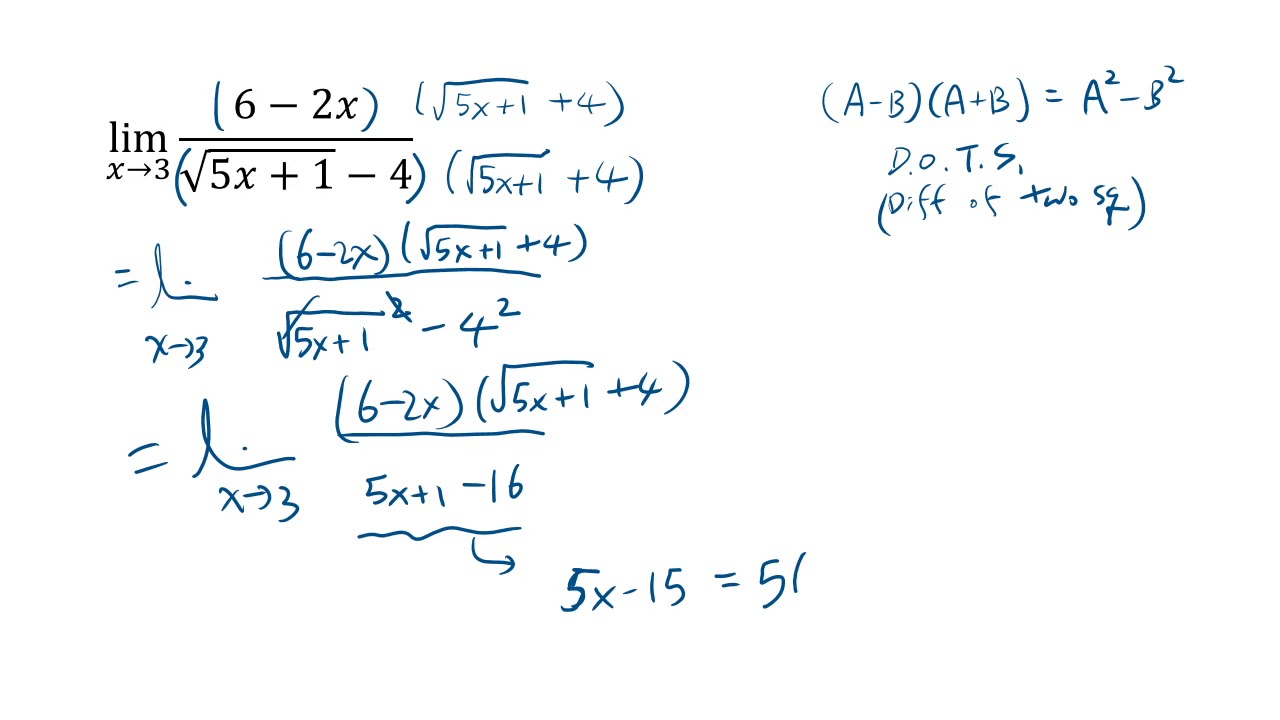 lim x→3 (6 − 2x) (√5x+1 + 4)
(√5x + 1 − 4) (√5x+1 + 4)
(A−B)(A+B) = A² − B²
D.O.T.S.
(Diff of two sq)
= lim x→3 (6−2x)(√5x+1 + 4)
√5x+1² − 4²
= lim x→3 (6−2x)(√5x+1 + 4)
5x+1 −16
5x−15 = 5(